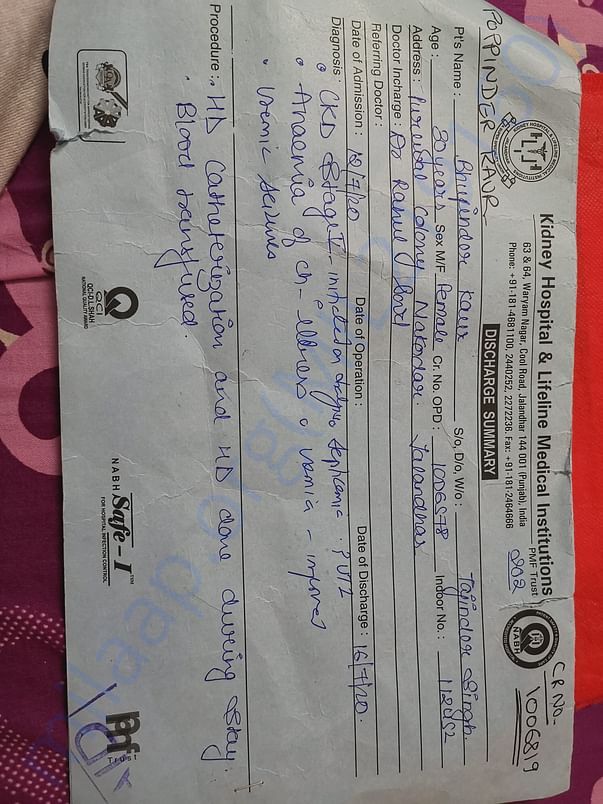 POPPINDER KAUR
Kidney Hospital & Lifeline Medical Institutions
PMF Trust
63 & 64, Waryam Nagar, Cool Road, Jalandhar 144 001 (Punjab), India
Phone: +91-181-4681100, 2440252, 2272236, Fax: +91-181-2464666
202
CR NO-
1006819
NABH
DISCHARGE SUMMARY
Pt's Name : Bhupinder Kaur S/o, D/o, W/o : Tajinder Singh
Age : 30 years Sex M/F Female Cr. No. OPD : Indoor No. :
Address : Colony Nakodar. Jalandhar
Doctor Incharge : Dr Rahul
Referring Doctor :
Date of Admission : 12/7/20 Date of Operation : Date of Discharge : 16/7/20.
Diagnosis : CKD Stage V - initiated on septicemic
Anaemia of Ch- illness Uremia - improved
Uremic seizures
Procedure : HD Catheterization and HD done during Stay.
Blood transfused.
QCI
QCI-D.L.SHAH
NATIONAL QUALITY AWARD
Safe-I TM
NABH
FOR HOSPITAL INFECTION CONTROL
pmf
Trust
milaap.org